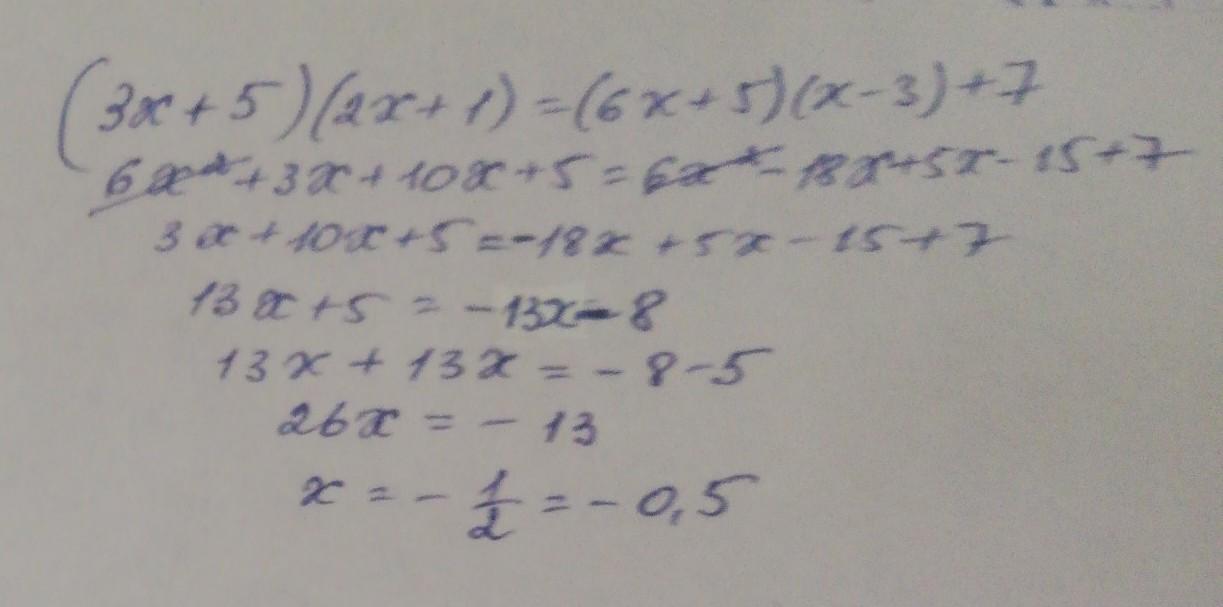 (3x+5)(2x+1)=(6x+5)(x-3)+7
6x²+3x+10x+5=6x²-18x+5x-15+7
3x+10x+5=-18x+5x-15+7
13x+5=-13x-8
13x+13x=-8-5
26x=-13
x=-1/2=-0,5